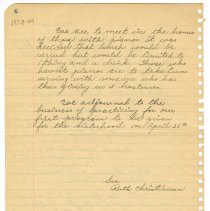 1948-49
We are to meet in the homes
of those with pianos. It was
decided that lunch would be
served but would be limited to
1 thing and a drink. Those who
haven't pianos are to take turn
serving with someone who has
thus giving us 2 hostesses.
We adjourned to the
business of practicing on our
first program to be given
for the Sisterhood on April 25th
Sec
Ruth Christianson